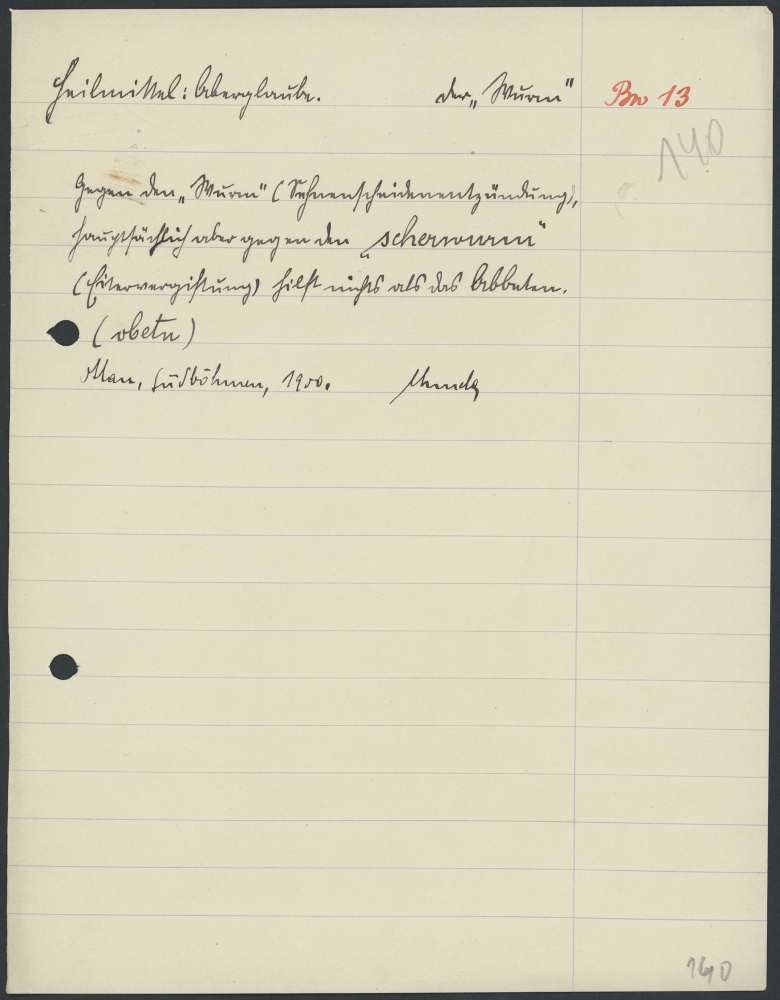 Heilmittel: Aberglaube. der „Wurm" Bw 13
140
Gegen den „Wurm" (Sehnenscheidenentzündung),
hauptsächlich aber gegen den „scherwurm"
(Eitervergiftung) hilft nichts als das Abbeten.
(obetn)
Südböhmen, 1900.
140